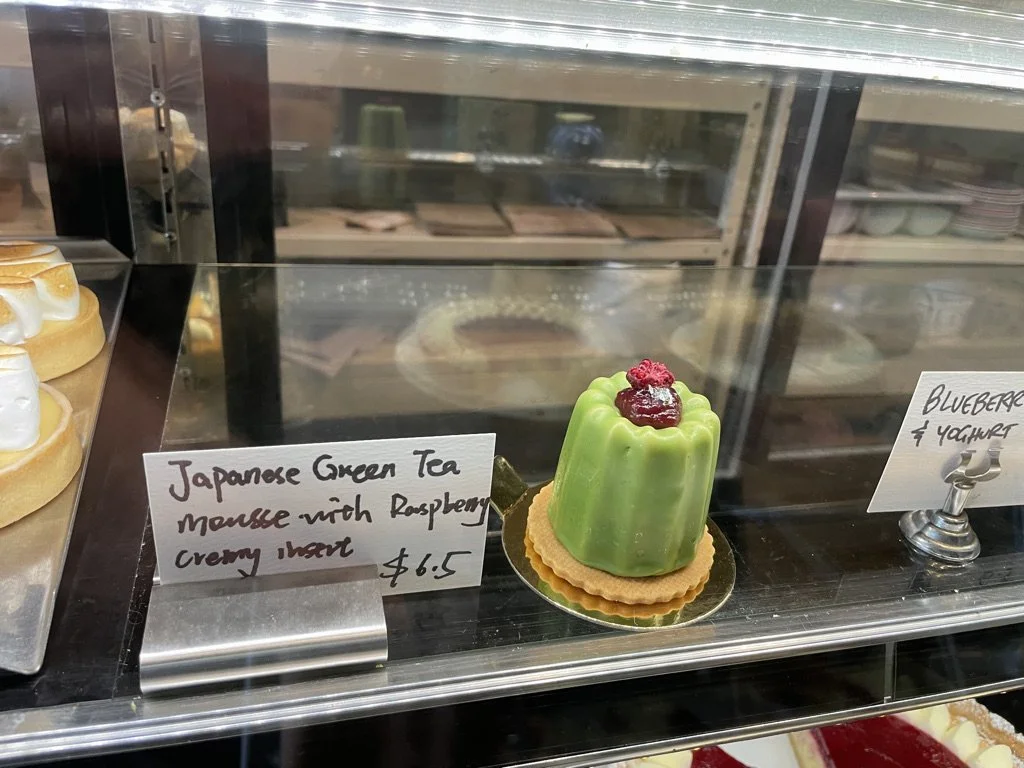 Japanese Green Tea
mousse with Raspberry
creamy insert
$6.5
BLUEBERR
& YOGHURT